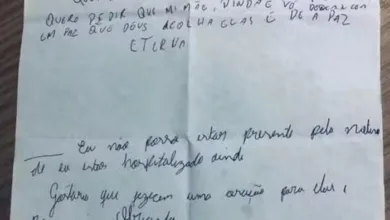 QUERO PEDIR QUE MI MÃE, VINDA E VÓ
EM PAZ QUE DEUS ACOLHA ELAS E DE A PAZ
ETERNA
Eu não posso estar presente pelo motivo
de eu estar hospitalizado ainda
Gostaria que fizecem uma oração para elas,